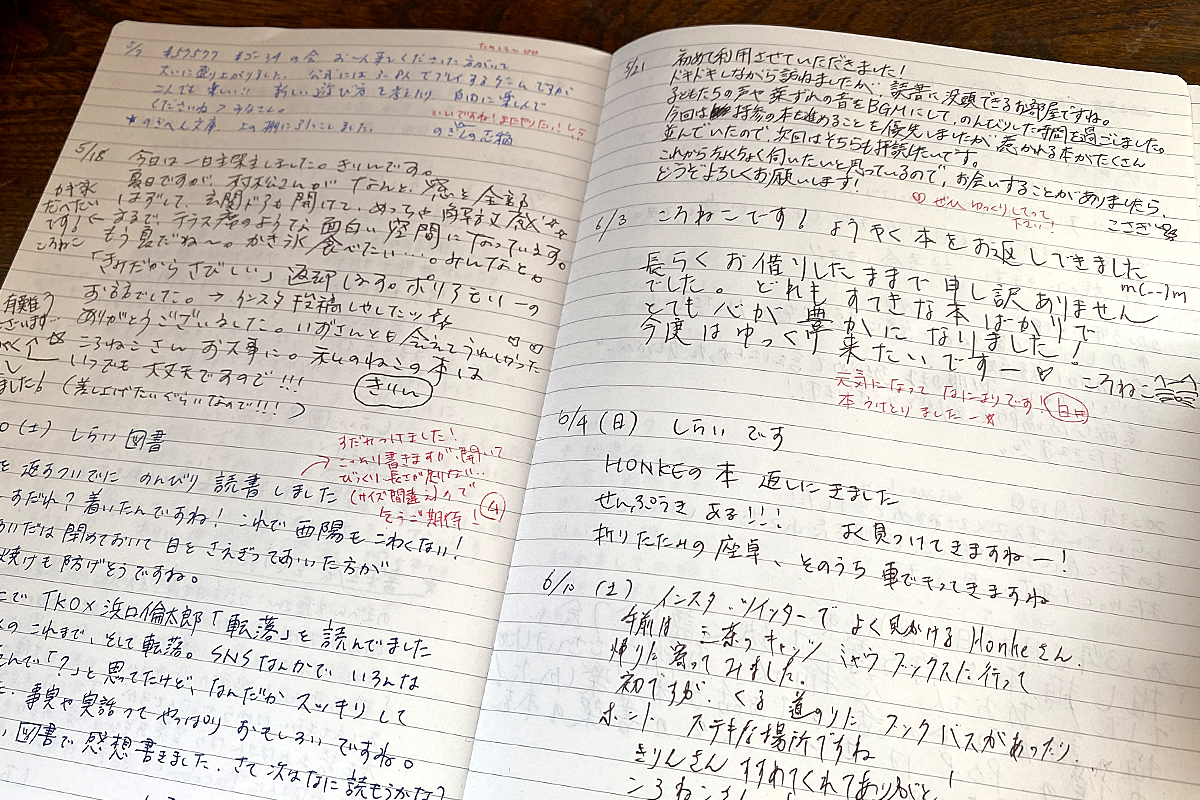 5/7
の会 お一人楽しくださった方がいて
大いに盛り上がりました。公式には3〜8人でプレイするゲームですが
二人でも楽しい!! 新しい遊び方を考えたり 自由に楽しんで
くださいね
いいですね!またやりたい!
★のきぺん文庫 上の棚に
5/18 今日は一日店番しました。きりんです。
夏日ですが、村松さんが なんと、窓を全部
はずして、玄関ドアも開けて、めっちゃ解放感☆☆
するで、テラス席のような面白い空間になっています。
もう夏だね〜。かき氷食べたい…。みんなと☆
かき氷
たべたい
です!
ころねこ
「きみだからさびしい」返却します。ポリアモリーの
お話でした。→インスタ投稿しやした!!☆☆
ありがとうございました。いがさんとも会えてうれしかった
ころねこさん お大事に。私のねこの本は
いつでも大丈夫ですので!!!
(差し上げたいぐらいなので!!!)
きりん
有難う
ございます…
ました!
(土) しらい図書
を返すついでに のんびり 読書しました
すだれ?着いたんですね!これで西陽もこわくない!
あいだは閉めておいて日をさえぎってあいた方が
焼けも防げそうですね。
すだれつけました!
こっそり書きますが開いて
びっくり長さが足りない…
(サイズ間違え)ので
乞うご期待!
④
で、「KO×浜口倫太郎「転落」を読んでました
のこれまで、そして転落。SNSなんかで いろんな
んで「?」と思ってたけど、なんだか スッキリして
た。事実や実話ってやっぱり おもしろい ですね。
図書で感想書きました。さて次はなに読もうかな?
5/21
初めて利用させていただきました!
ドキドキしながら訪ねましたが、読書に没頭できるお部屋ですね。
子どもたちの声や葉ずれの音をBGMにして、のんびりした時間を過ごしました。
今回は持参の本を進めることを優先しましたが、惹かれる本がたくさん
並んでいたので、次回はそちらも拝読したいです。
これからちょくちょく伺いたいと思っているので、お会いすることがありましたら、
どうぞよろしくお願いします!
こさぎ
ぜひ ゆっくりしてって
下さい!
6/3 ころねこです! ようやく本をお返しできました
長らくお借りしたままで申し訳ありません
m(--)m
でした。どれもすてきな本ばかりで
とても心が豊かになりました!
今度はゆっくり来たいですー♡ ころねこ
元気になって なによりです!
本うけとりましたー☆
6/4(日) しらいです
HONKEの本 返しにきました
せんぷうき ある!!!
よく見つけてきますねー!
折りたたみの座卓、そのうち車でもってきますね
6/10 (土) インスタ・ツイッターでよく見かけるHonkeさん.
午前は三茶っキャッツミャウブックスに行って
帰りに寄ってみました.
初ですが、くる道のりに ブックバスがあったり...
ホント ステキな場所ですね
きりんさん すすめてくれてありがと!